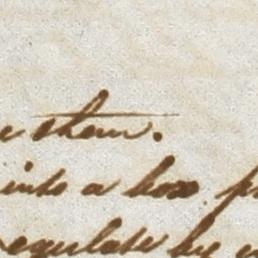 them.
into a box
regulate by